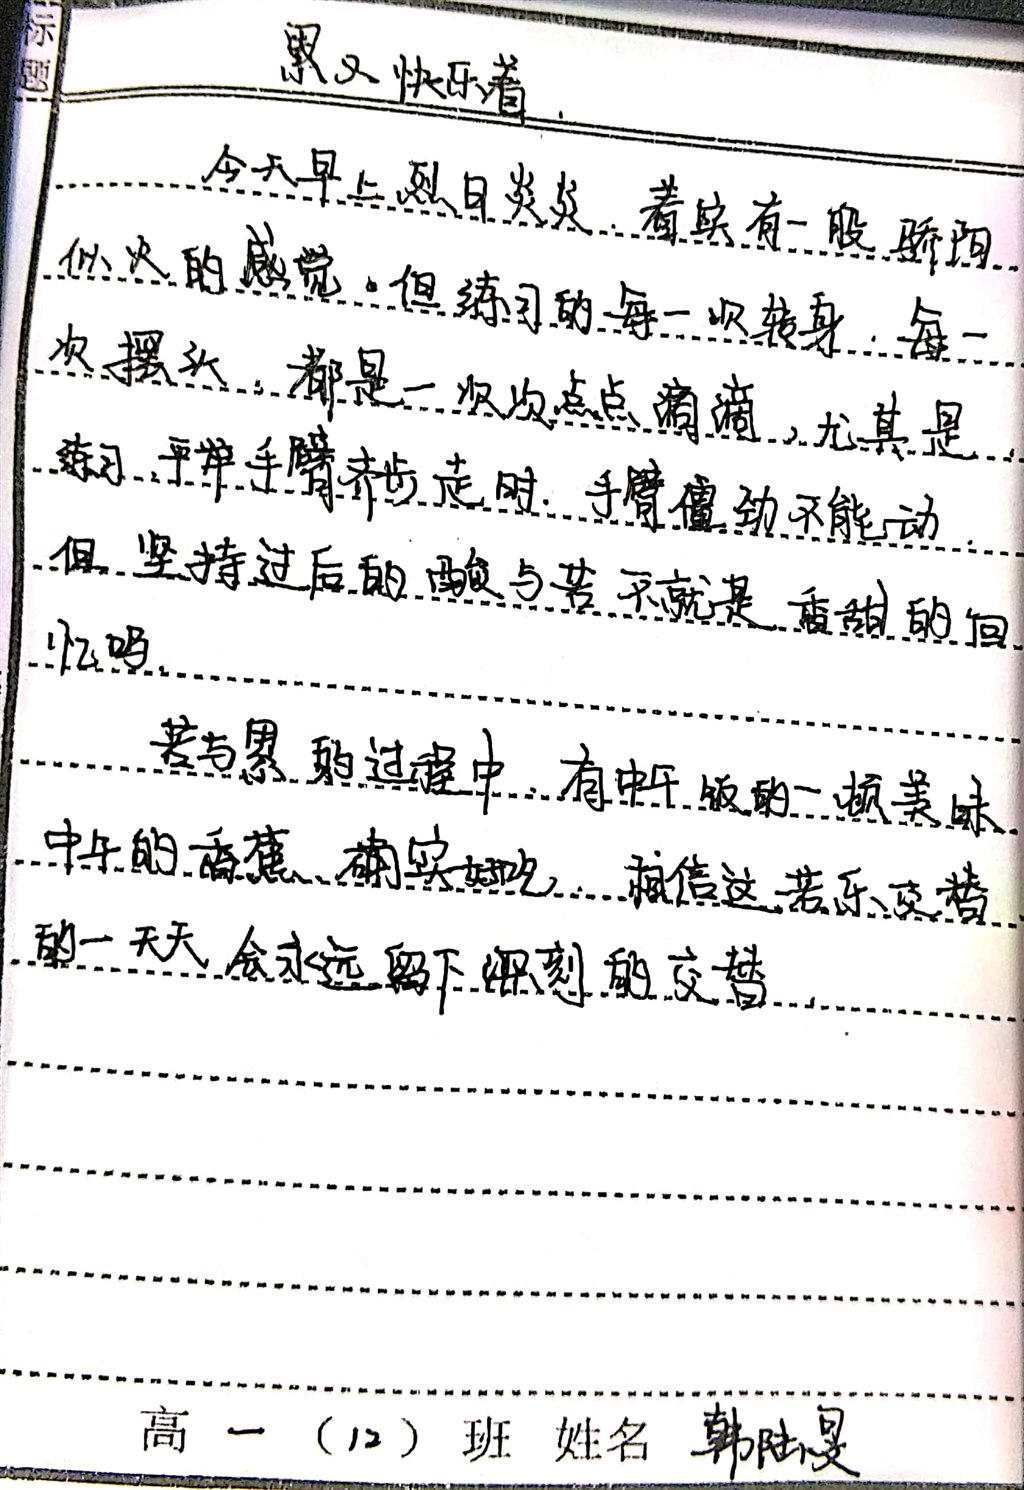 标题
累又快乐着
今天早上烈日炎炎.着实有一股骄阳
似火的感觉.但练习的每一次转身.每一
次摆头.都是一次次点点滴滴,尤其是
练习平举手臂齐步走时.手臂僵劲不能动.
但坚持过后的酸与苦不就是香甜的回
忆吗.
苦与累的过程中.有中午饭的一顿美味
中午的香蕉确实好吃.相信这苦乐交替
的一天天会永远留下深刻的交替.
高一(12)班 姓名 韩陆旻